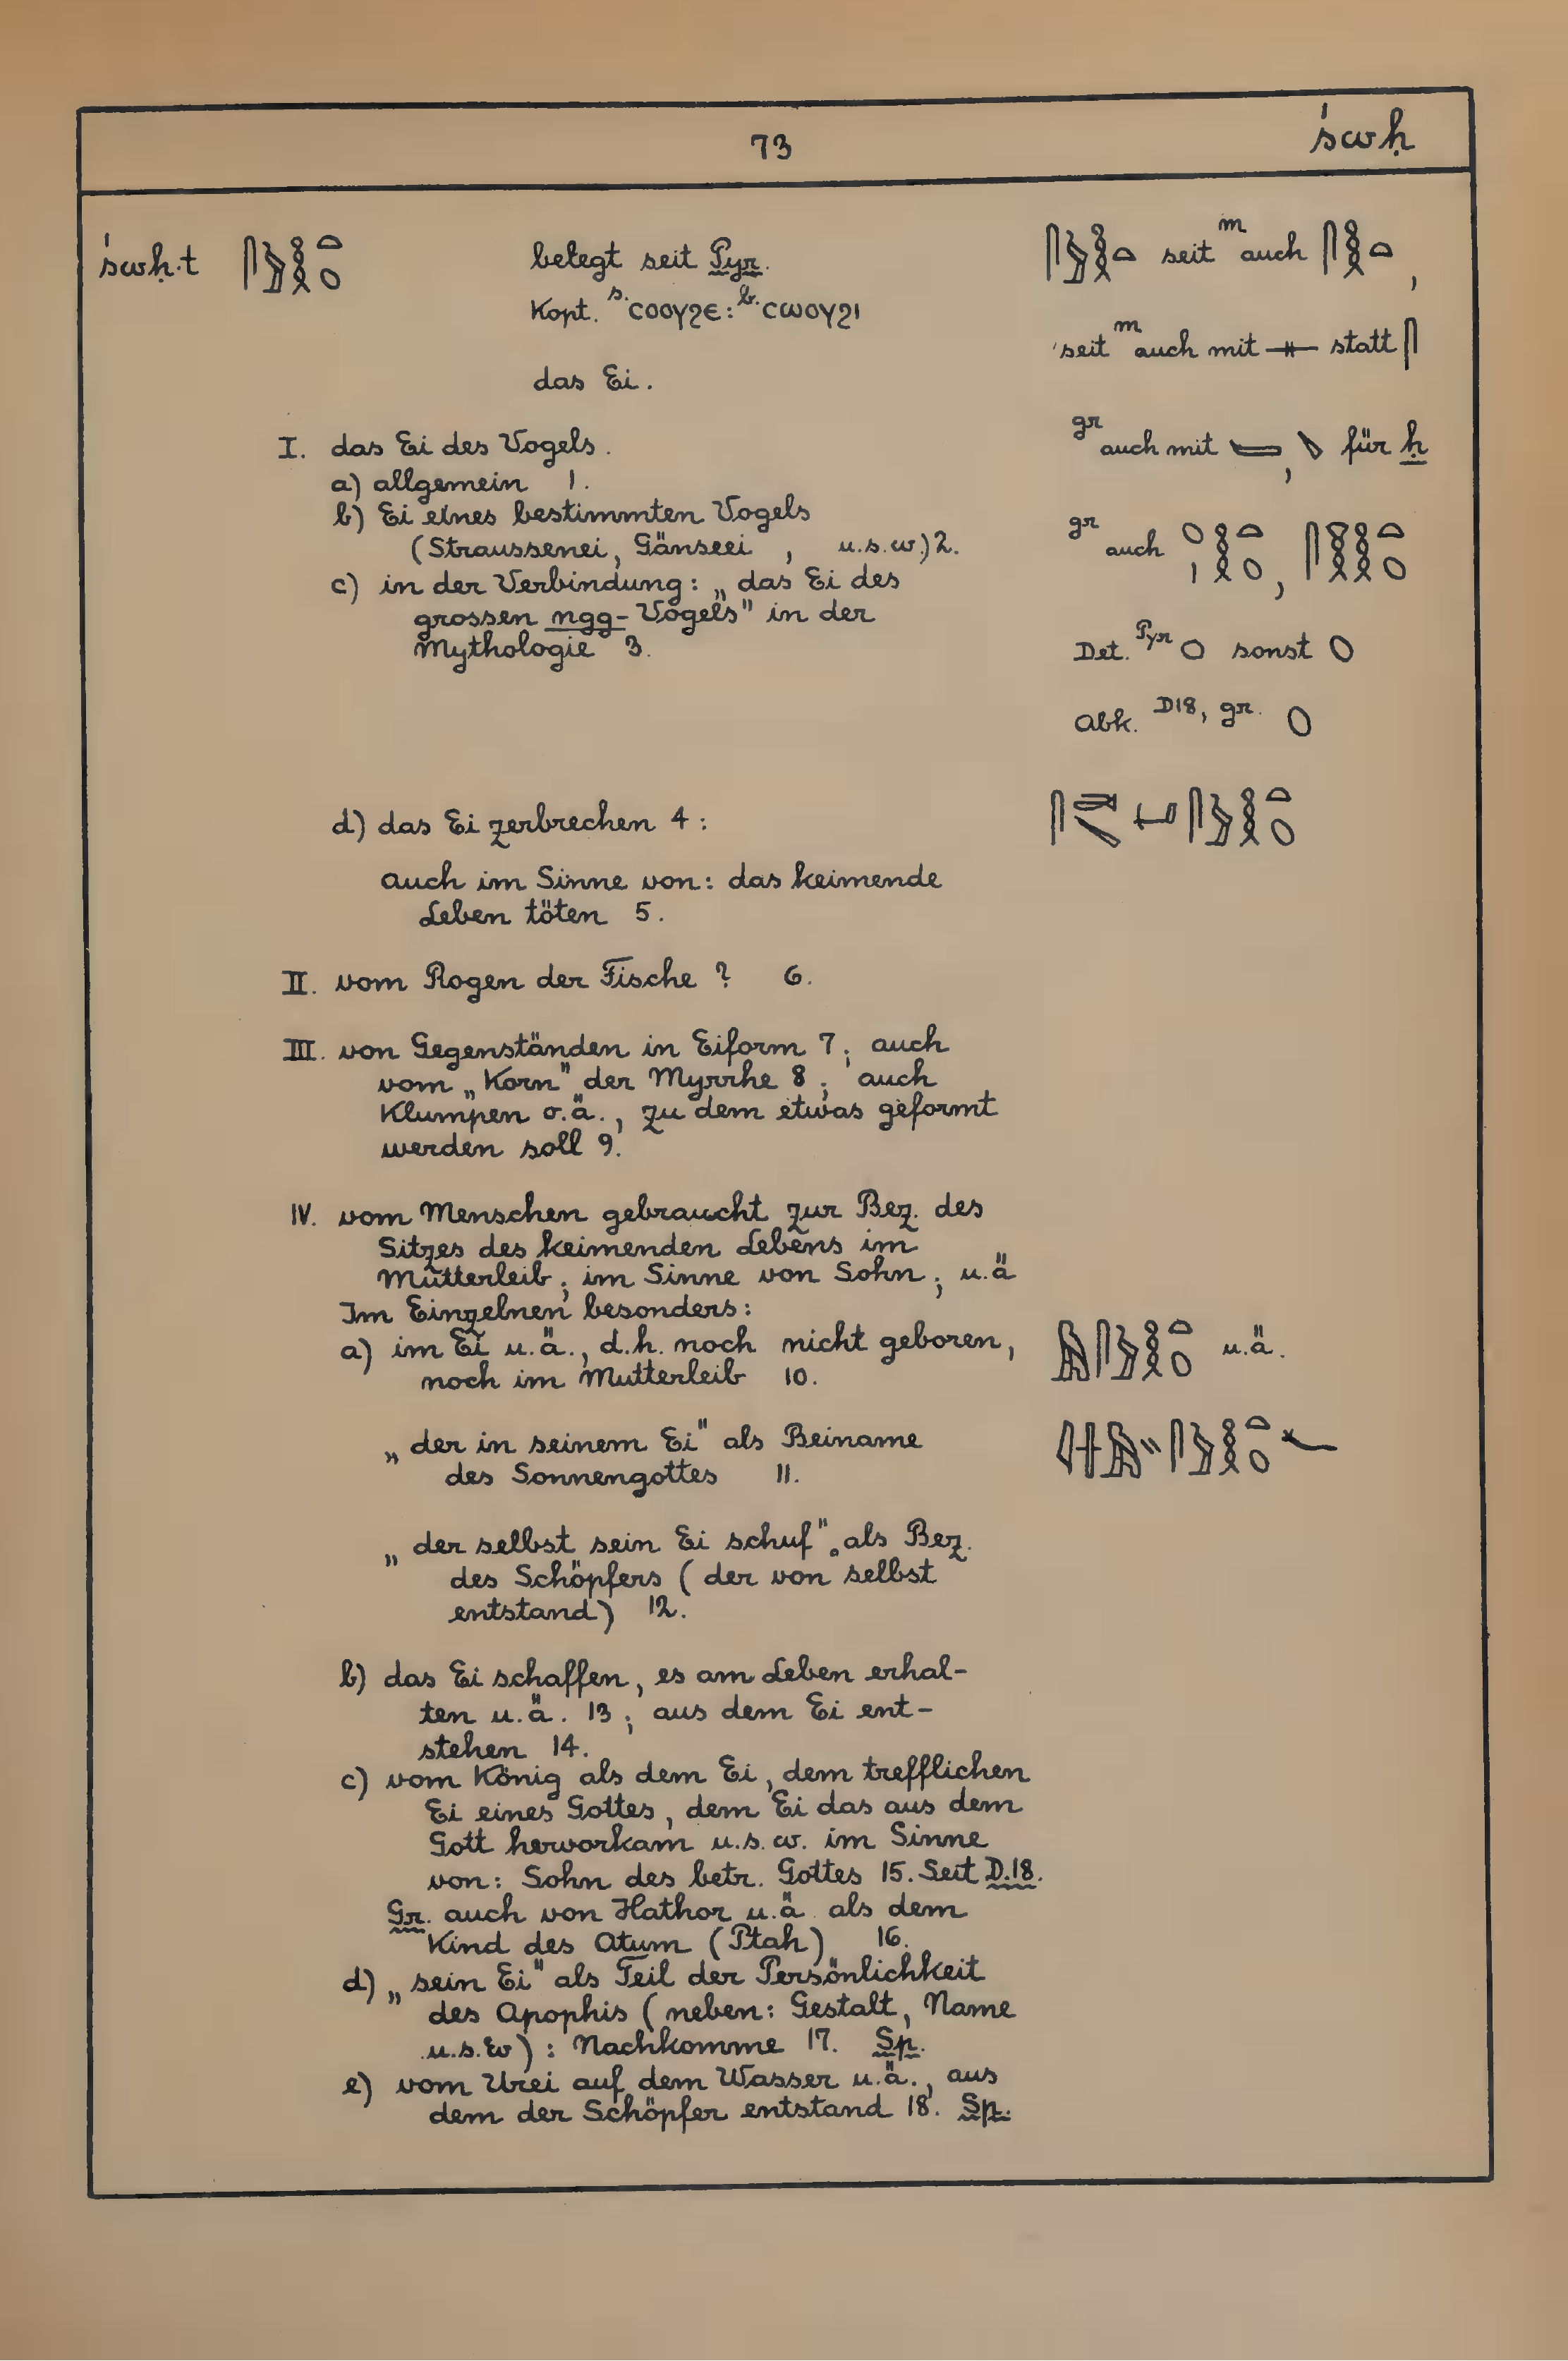 73
św&#7717;
św&#7717;.t 𓋴𓅱𓎛𓏏𓆇
belegt seit Pyr.
Kopt. s. ⲥⲟⲟⲩϩⲉ : b. ⲥⲱⲟⲩϩⲓ
das Ei.
seit m auch
seit m auch mit 𓊃 statt 𓋴
I. das Ei des Vogels.
gr auch mit , für ḥ
a) allgemein 1.
b) Ei eines bestimmten Vogels
(Straussenei, Gänseei , u.s.w.) 2.
gr auch
c) in der Verbindung: „das Ei des
grossen ngg-Vogels" in der
Mythologie 3.
Det. Pyr sonst
Abk. D18, gr.
d) das Ei zerbrechen 4 :
auch im Sinne von: das keimende
Leben töten 5.
II. vom Rogen der Fische ? 6.
III. von Gegenständen in Eiform 7; auch
vom „Korn" der Myrrhe 8; auch
Klumpen o.ä., zu dem etwas geformt
werden soll 9.
IV. vom Menschen gebraucht zur Bez. des
Sitzes des keimenden Lebens im
Mutterleib; im Sinne von Sohn; u.ä
Im Einzelnen besonders:
a) im Ei u.ä., d.h. noch nicht geboren,
noch im Mutterleib 10.
u.ä.
„der in seinem Ei" als Beiname
des Sonnengottes 11.
„der selbst sein Ei schuf" als Bez.
des Schöpfers (der von selbst
entstand) 12.
b) das Ei schaffen, es am Leben erhal-
ten u.ä. 13; aus dem Ei ent-
stehen 14.
c) vom König als dem Ei, dem trefflichen
Ei eines Gottes, dem Ei das aus dem
Gott hervorkam u.s.w. im Sinne
von: Sohn des betr. Gottes 15. Seit D.18.
Gr. auch von Hathor u.ä. als dem
Kind des Atum (Ptah) 16.
d) „sein Ei" als Teil der Persönlichkeit
des Apophis (neben: Gestalt, Name
u.s.w) : Nachkomme 17. Sp.
e) vom Urei auf dem Wasser u.ä., aus
dem der Schöpfer entstand 18. Sp.